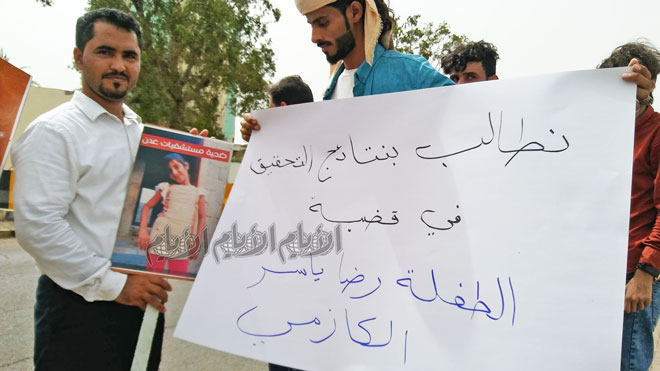 نطالب بنتائج التحقيق
في قضية
الطفلة رضا ياسر
الكازمي
ضحية مستشفيات عدن
الأيام الأيام الأيام